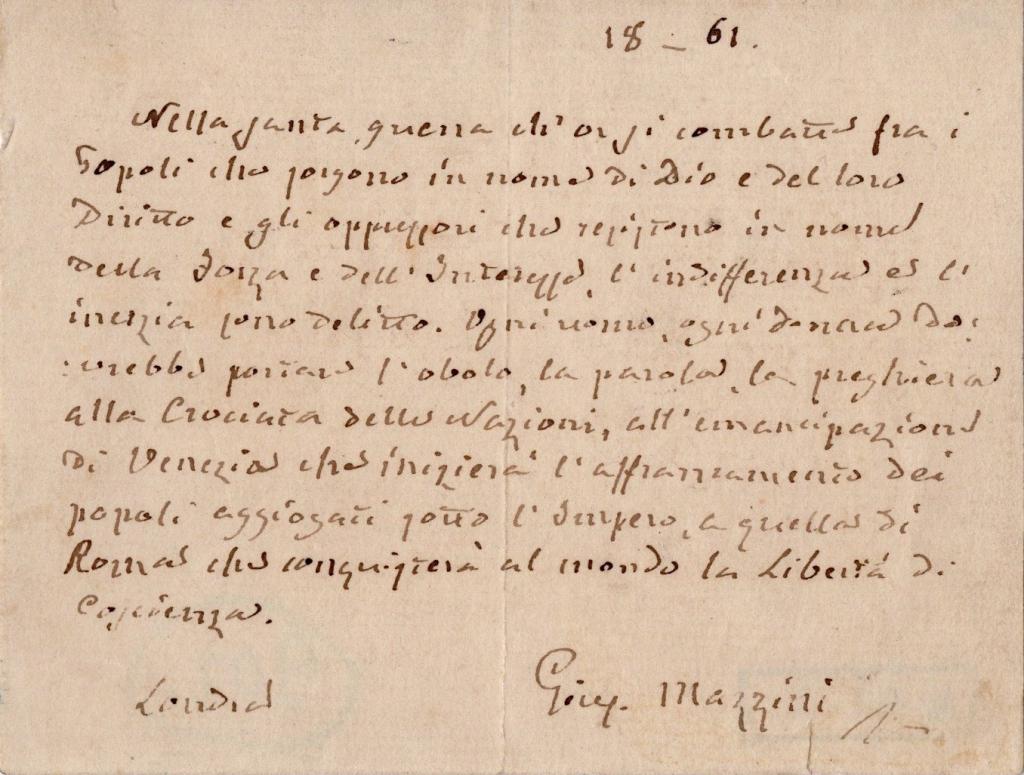 18 – 61.
Nella santa guerra ch'or si combatte fra i
Popoli che sorgono in nome di Dio e del loro
Diritto e gli oppressori che resistono in nome
della Forza e dell'Interesse, l'indifferenza e l'
inerzia sono delitto. Ogni uomo, ogni donna do:
:vrebbe portare l'obolo, la parola, la preghiera
alla Crociata delle Nazioni, all'emancipazione
di Venezia che inizierà l'affrancamento dei
popoli aggiogati sotto l'Impero, a quella di
Roma che conquisterà al mondo la Libertà di
Coscienza.
Londra
Gius. Mazzini